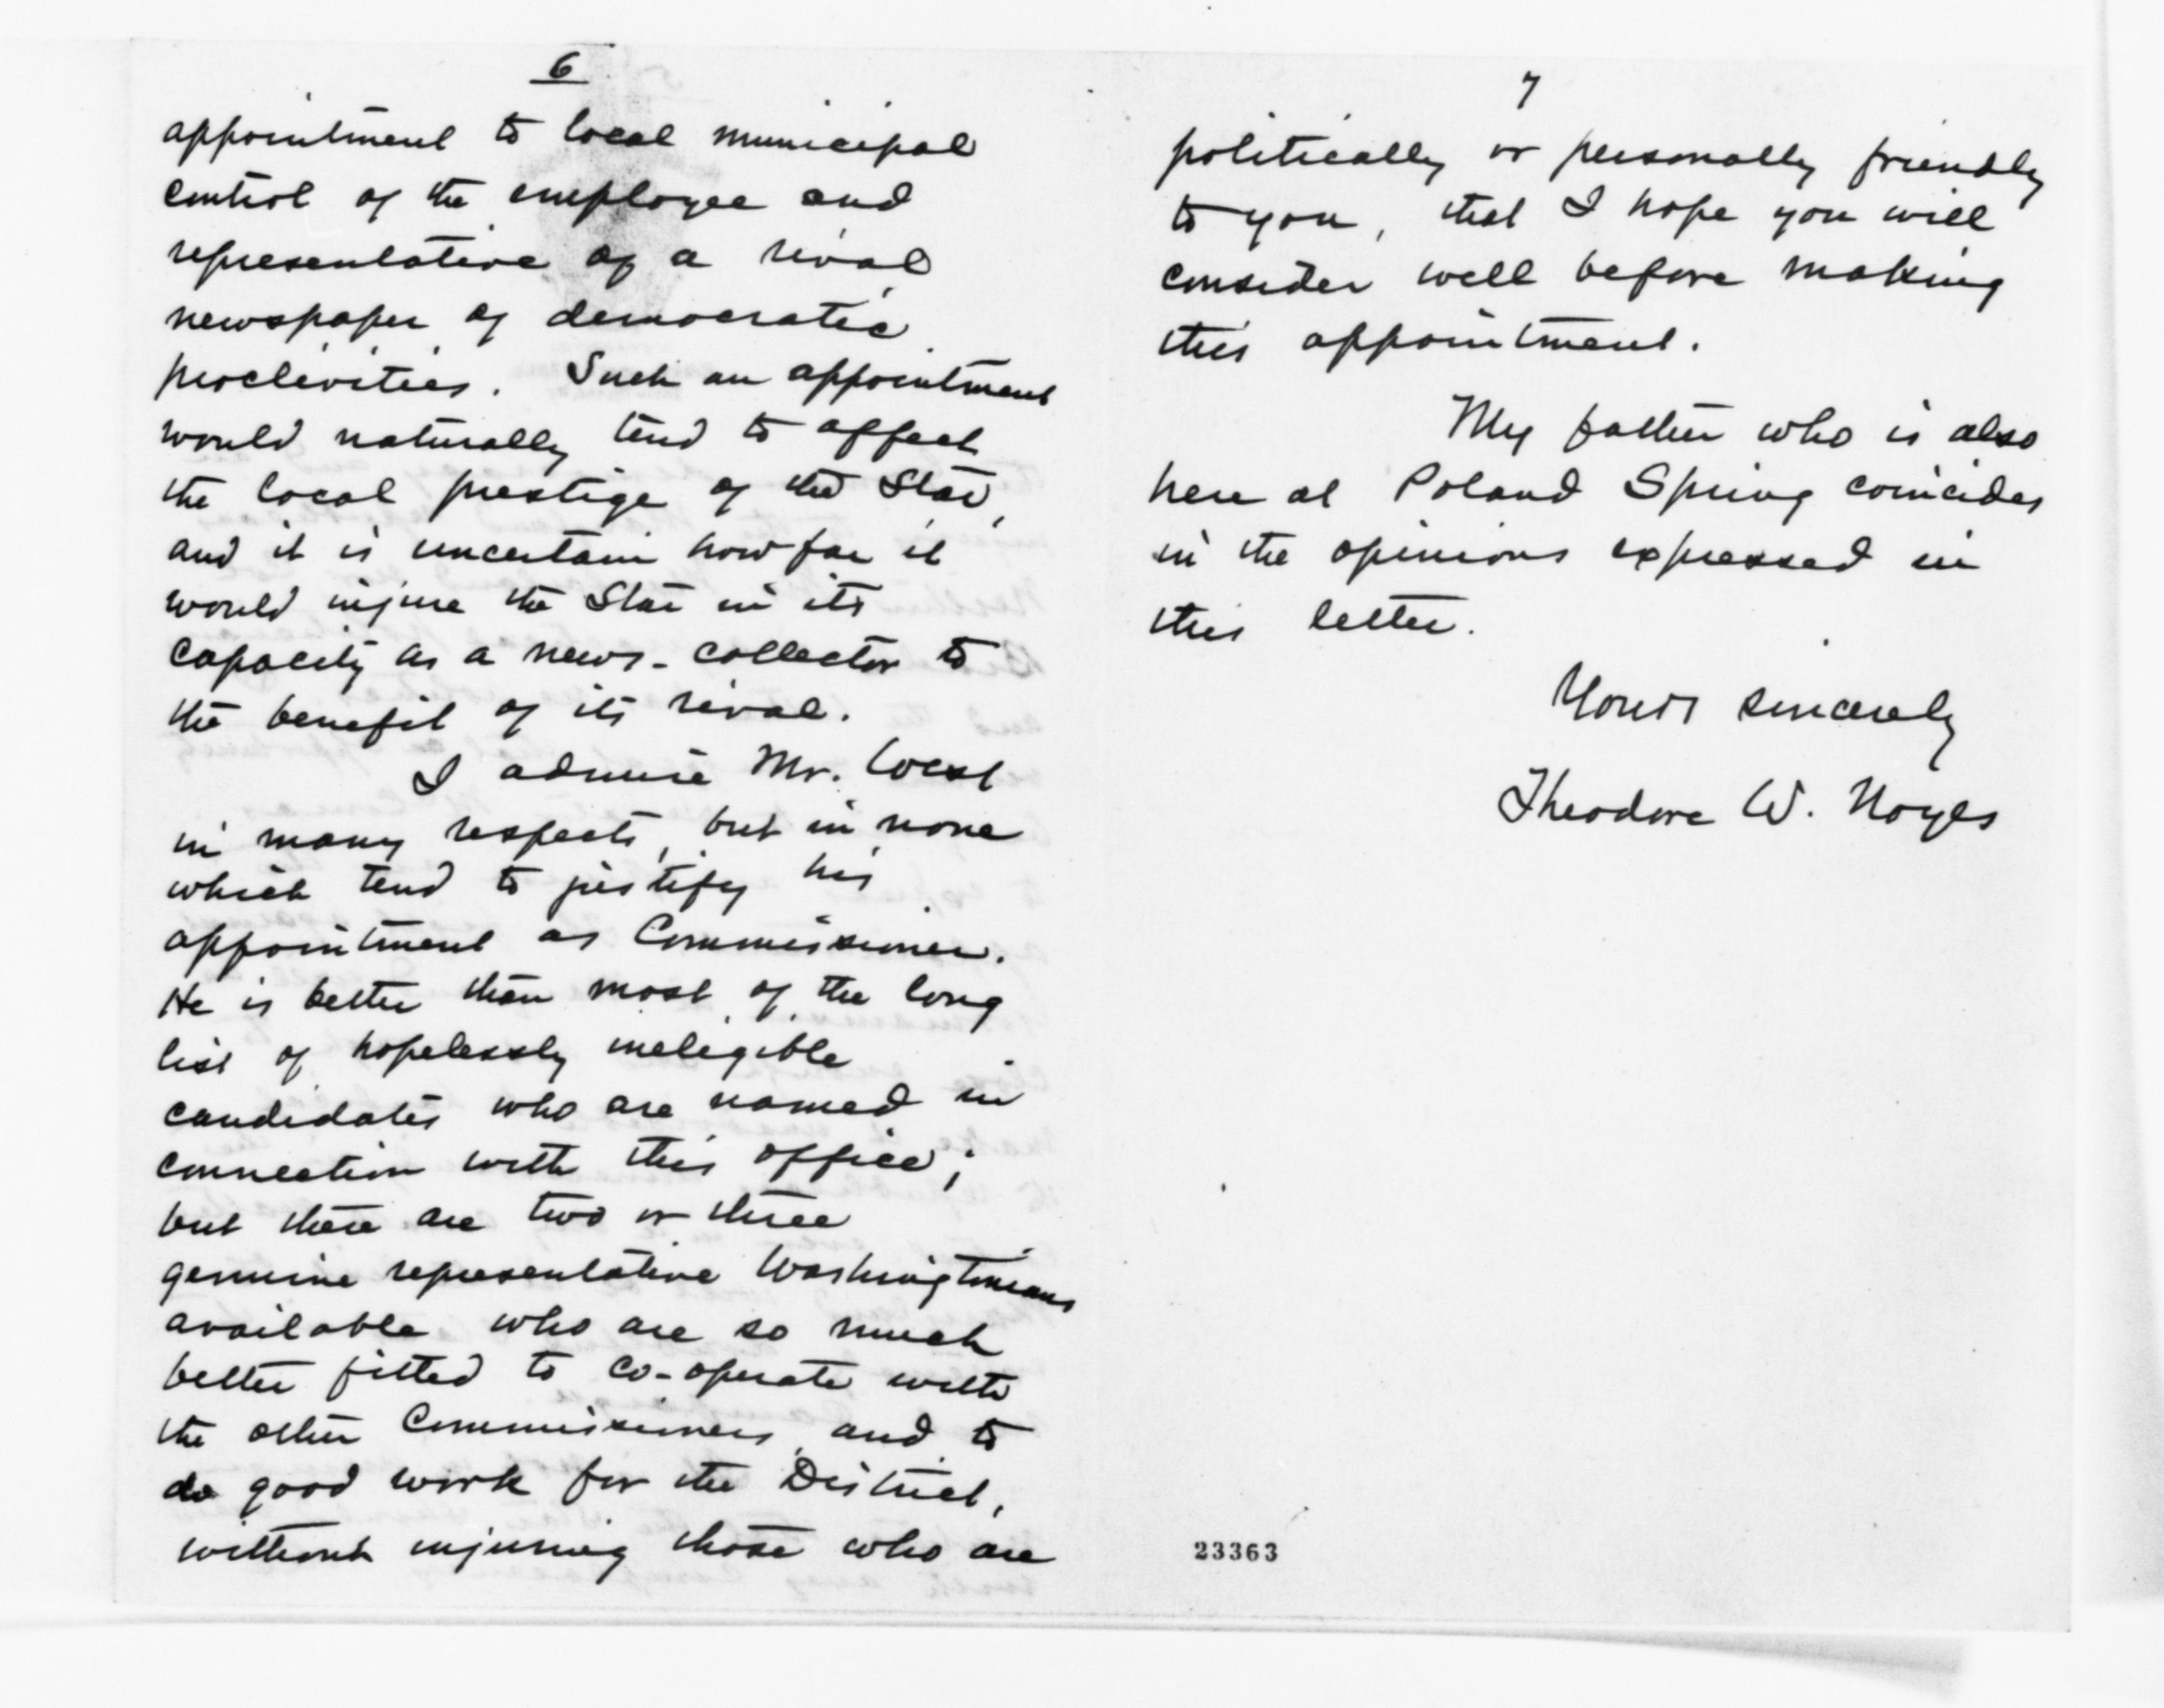 6
appointment to local municipal
control of the employee and
representative of a rival
newspaper of democratic
proclivities. Such an appointment
would naturally tend to affect
the local prestige of the Star,
and it is uncertain how far it
would injure the Star in its
capacity as a news-collector to
the benefit of its rival.
I admire Mr. West
in many respects, but in none
which tend to justify his
appointment as Commissioner.
He is better than most of the long
list of hopelessly ineligible
candidates who are named in
connection with this office;
but there are two or three
genuine representative Washingtonians
available who are so much
better fitted to co-operate with
the other Commissioners and to
do good work for the District,
without injuring those who are
7
politically or personally friendly
to you, that I hope you will
consider well before making
this appointment.
My father who is also
here at Poland Spring coincides
in the opinions expressed in
this letter.
Yours sincerely
Theodore W. Noyes
23363